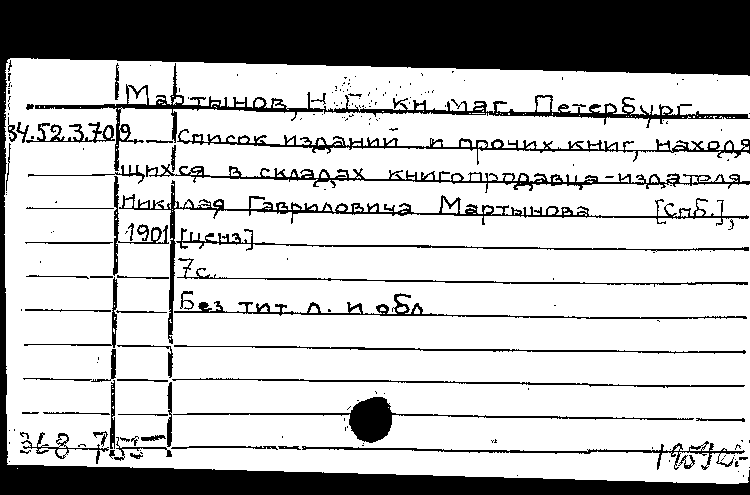 Мартынов, Н.Г. кн. маг. Петербург.
34.52.3.709. Список изданий и прочих книг, находя
щихся в складах книгопродавца-издателя
Николая Гавриловича Мартынова [Спб.],
1901 [ценз.]
7с.
Без тит. л. и обл.
368-755